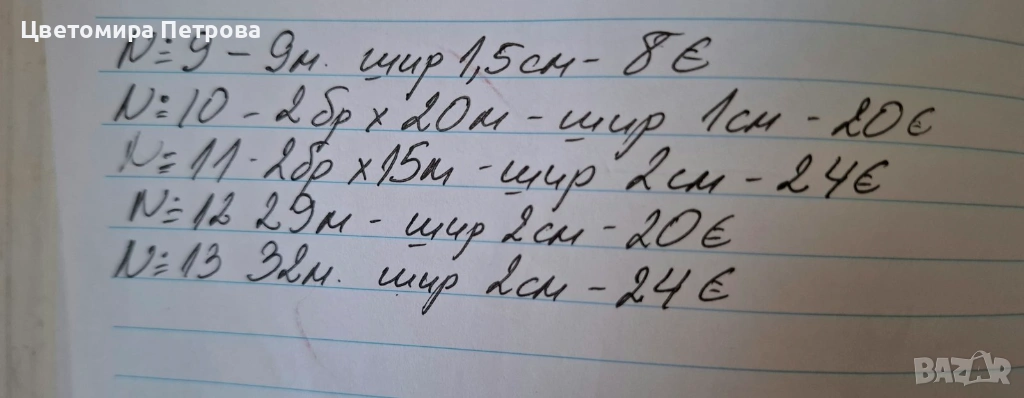 Цветомира Петрова
№ 9 - 9м. шир 1,5см - 8 €
№ 10 - 2бр x 20м - шир 1см - 20€
№ 11 - 2бр x 15м - шир 2см - 24€
№ 12 29м - шир 2см - 20€
№ 13 32м. шир 2см - 24€
BAZAR